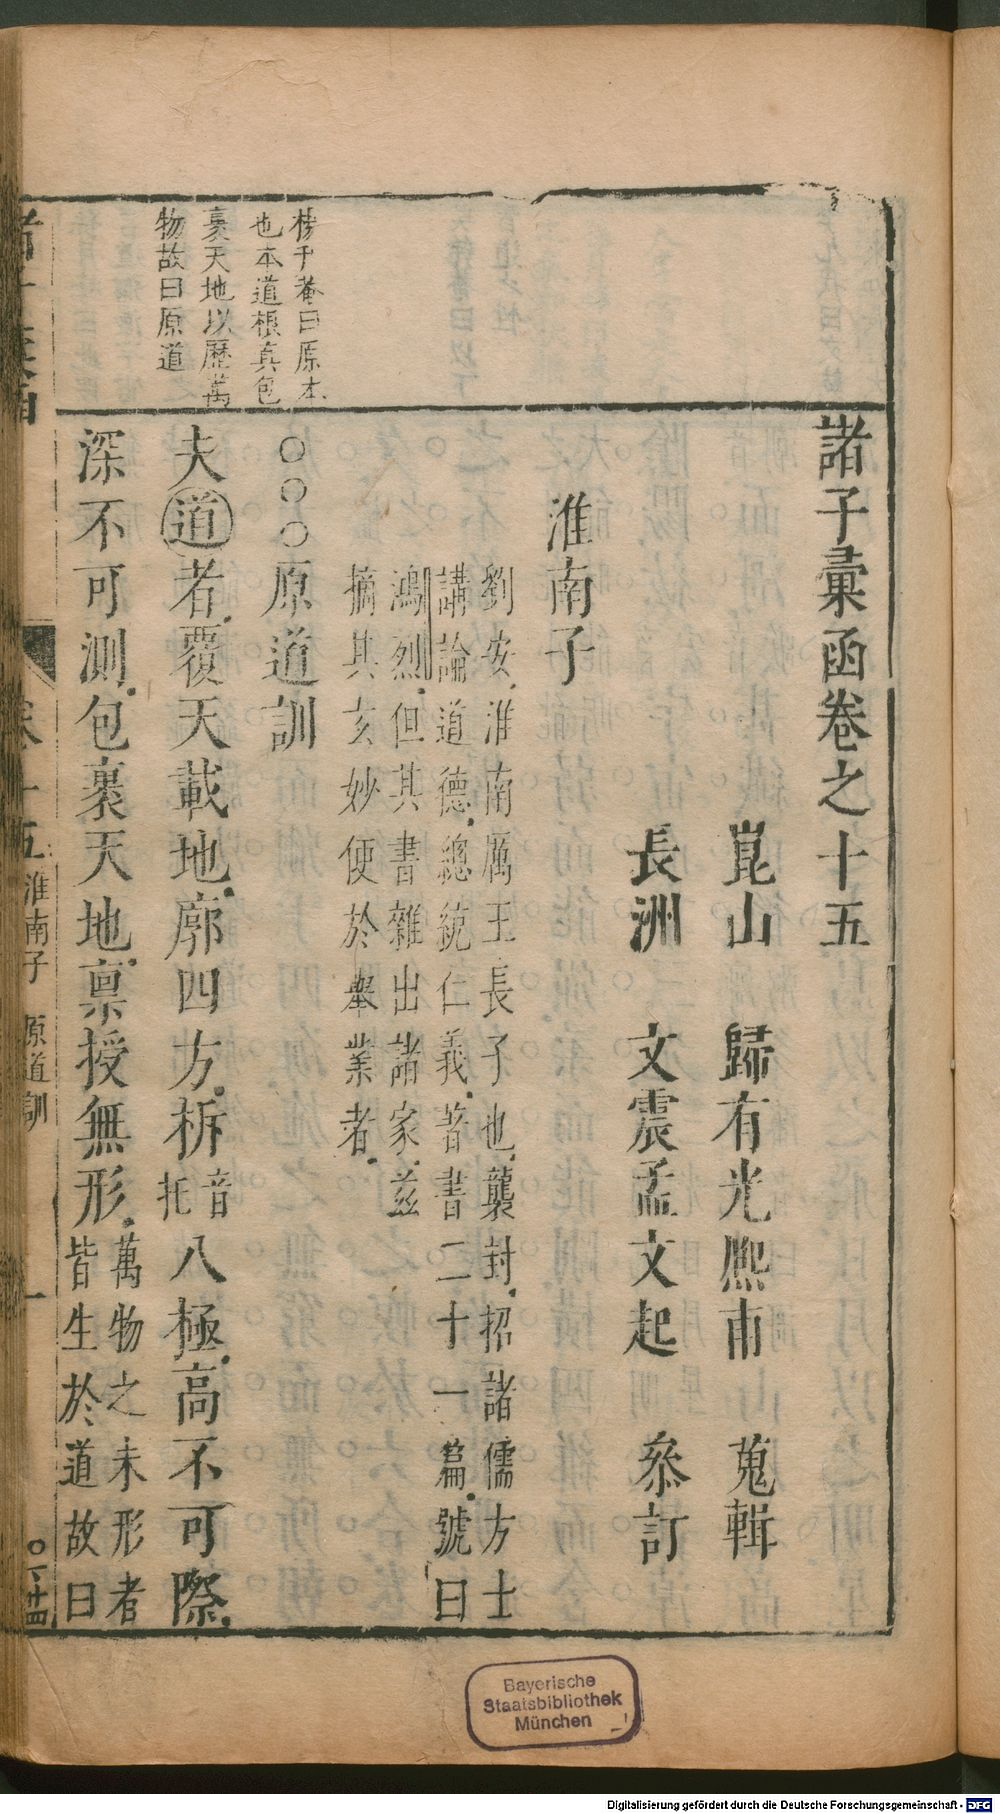 諸子彙函卷之十五
崑山　歸有光熙甫　蒐輯
長洲　文震孟文起　叅訂
淮南子
劉安淮南厲王長子也襲封招諸儒方士
講論道德總統仁義著書二十一篇號曰
鴻烈但其書雜出諸家茲
摘其玄妙便於舉業者
○○○原道訓
夫道者覆天載地廓四方柝音托八極高不可際
深不可測包裹天地禀授無形萬物之未形者皆生於道故曰
楊升菴曰原本
也本道根真包
裹天地以歷萬
物故曰原道
卷十五 淮南子 原道訓 一
Bayerische
Staatsbibliothek
München
Digitalisierung gefördert durch die Deutsche Forschungsgemeinschaft - DFG